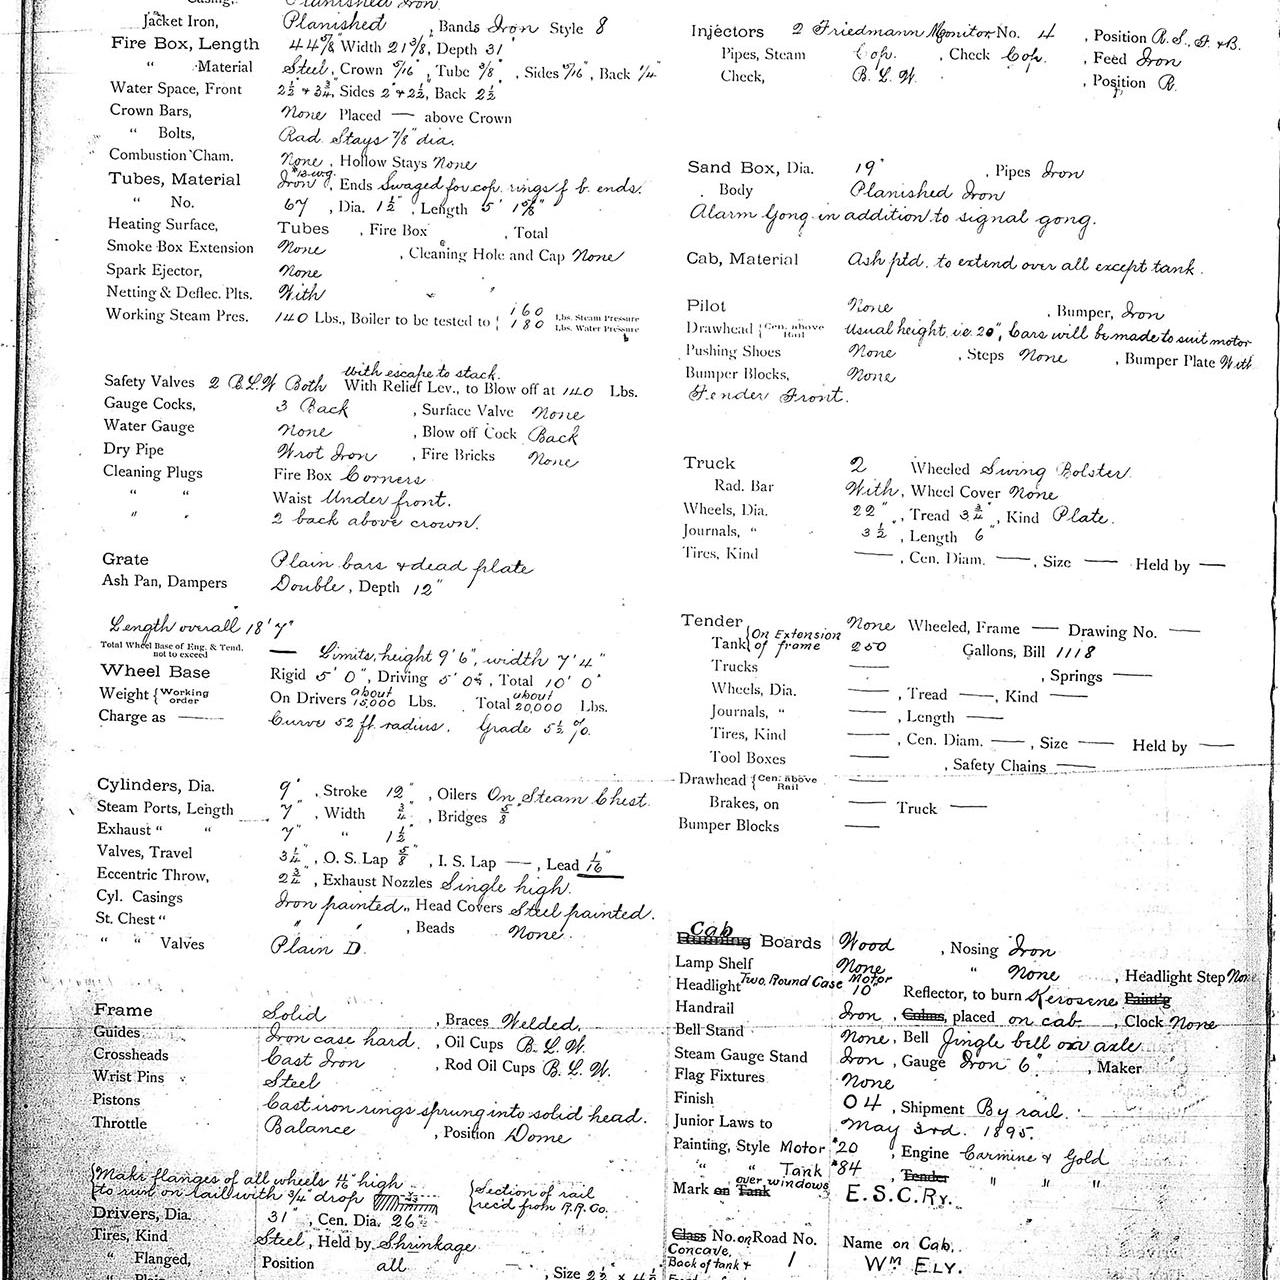 Casing, Planished Iron.
Jacket Iron, Planished , Bands Iron Style 8
Fire Box, Length 44 5/8" Width 21 3/8, Depth 31"
" Material Steel, Crown 5/16", Tube 3/8", Sides 5/16", Back 1/4"
Water Space, Front 2 1/2" & 3 3/4", Sides 2" & 2 1/2", Back 2 1/2"
Crown Bars, None Placed — above Crown
" Bolts, Rad. Stays 7/8" dia.
Combustion Cham. None, Hollow Stays None
Tubes, Material Iron , Ends Swaged for cop. rings f. b. ends.
" No. 67 , Dia. 1 1/2", Length 5' 1 5/8"
Heating Surface, Tubes , Fire Box , Total
Smoke Box Extension None , Cleaning Hole and Cap None
Spark Ejector, None
Netting & Deflec. Plts. With " "
Working Steam Pres. 140 Lbs., Boiler to be tested to { 160 Lbs. Steam Pressure
180 Lbs. Water Pressure
with escape to stack.
Safety Valves 2 B.L.W. Both With Relief Lev., to Blow off at 140 Lbs.
Gauge Cocks, 3 Back , Surface Valve None
Water Gauge None , Blow off Cock Back
Dry Pipe Wrot Iron , Fire Bricks None
Cleaning Plugs Fire Box Corners
" " Waist Under front.
" " 2 back above crown.
Grate Plain bars & dead plate
Ash Pan, Dampers Double, Depth 12"
Length overall 18' 7"
Total Wheel Base of Eng. & Tend. not to exceed — Limits, height 9' 6", width 7' 4"
Wheel Base Rigid 5' 0", Driving 5' 0", Total 10' 0"
Weight { Working order On Drivers about 15,000 Lbs. Total about 20,000 Lbs.
Charge as — Curve 52 ft. radius. Grade 5 1/2 %.
Cylinders, Dia. 9" , Stroke 12" , Oilers On Steam Chest.
Steam Ports, Length 7" , Width 3/4" , Bridges 5/8"
Exhaust " " 7" " 1 1/2"
Valves, Travel 3 1/4", O. S. Lap 5/8", I. S. Lap —, Lead 1/16"
Eccentric Throw, 2 3/4", Exhaust Nozzles Single high.
Cyl. Casings Iron painted, Head Covers Steel painted.
St. Chest " " " , Beads None.
" " Valves Plain D.
Frame Solid , Braces Welded.
Guides, Iron case hard. , Oil Cups B. L. W.
Crossheads Cast Iron , Rod Oil Cups B. L. W.
Wrist Pins Steel
Pistons Cast iron rings sprung into solid head.
Throttle Balance , Position Dome
{ Make flanges of all wheels high
to run on rail with 3/4" drop { Section of rail
rec'd from R.R. Co.
Drivers, Dia. 31" , Cen. Dia. 26"
Tires, Kind Steel, Held by Shrinkage
" Flanged, Position all
, Size 2 1/2" x 4 1/2
Injectors 2 Friedmann Monitor No. 4 , Position R. S., F. & B.
Pipes, Steam Cop. , Check Cop. , Feed Iron
Check, B. L. W. , Position R.
Sand Box, Dia. 19" , Pipes Iron
Body Planished Iron
Alarm Gong in addition to signal gong.
Cab, Material Ash ptd. to extend over all except tank.
Pilot None , Bumper, Iron
Drawhead { Cen. above Rail Usual height, i.e. 20", Cars will be made to suit motor
Pushing Shoes None , Steps None , Bumper Plate With
Bumper Blocks, None
Fender Front.
Truck 2 Wheeled Swing Bolster.
Rad. Bar With, Wheel Cover None
Wheels, Dia. 22" , Tread 3 3/4", Kind Plate.
Journals, " 3 1/2", Length 6"
Tires, Kind — , Cen. Diam. —, Size — Held by —
Tender None Wheeled, Frame — Drawing No. —
Tank { On Extension of frame 250 Gallons, Bill 1118
Trucks — , Springs —
Wheels, Dia. — , Tread —, Kind —
Journals, " — , Length —
Tires, Kind — , Cen. Diam. —, Size — Held by —
Tool Boxes — , Safety Chains —
Drawhead { Cen. above Rail —
Brakes, on — Truck —
Bumper Blocks —
Cab
Running Boards Wood , Nosing Iron
Lamp Shelf None " None , Headlight Step None
Headlight Two Round Case Motor 10" Reflector, to burn Kerosene Paint'g
Handrail Iron , Colms, placed on cab. , Clock None
Bell Stand None, Bell Jingle bell on axle
Steam Gauge Stand Iron , Gauge Iron 6" , Maker
Flag Fixtures None
Finish 04 , Shipment By rail.
Junior Laws to May 3rd. 1895.
Painting, Style Motor #20 , Engine Carmine & Gold
" " Tank #84 Tender " " "
over windows
Mark on Tank E. S. C. Ry.
Class No. or Road No. Name on Cab.
Concave,
Back of tank & 1 Wm ELY.